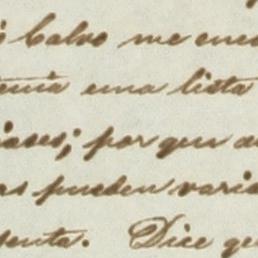 Calvo me enca
tenia una lista
iases; por que a
as pueden varia
senta. Dice qu